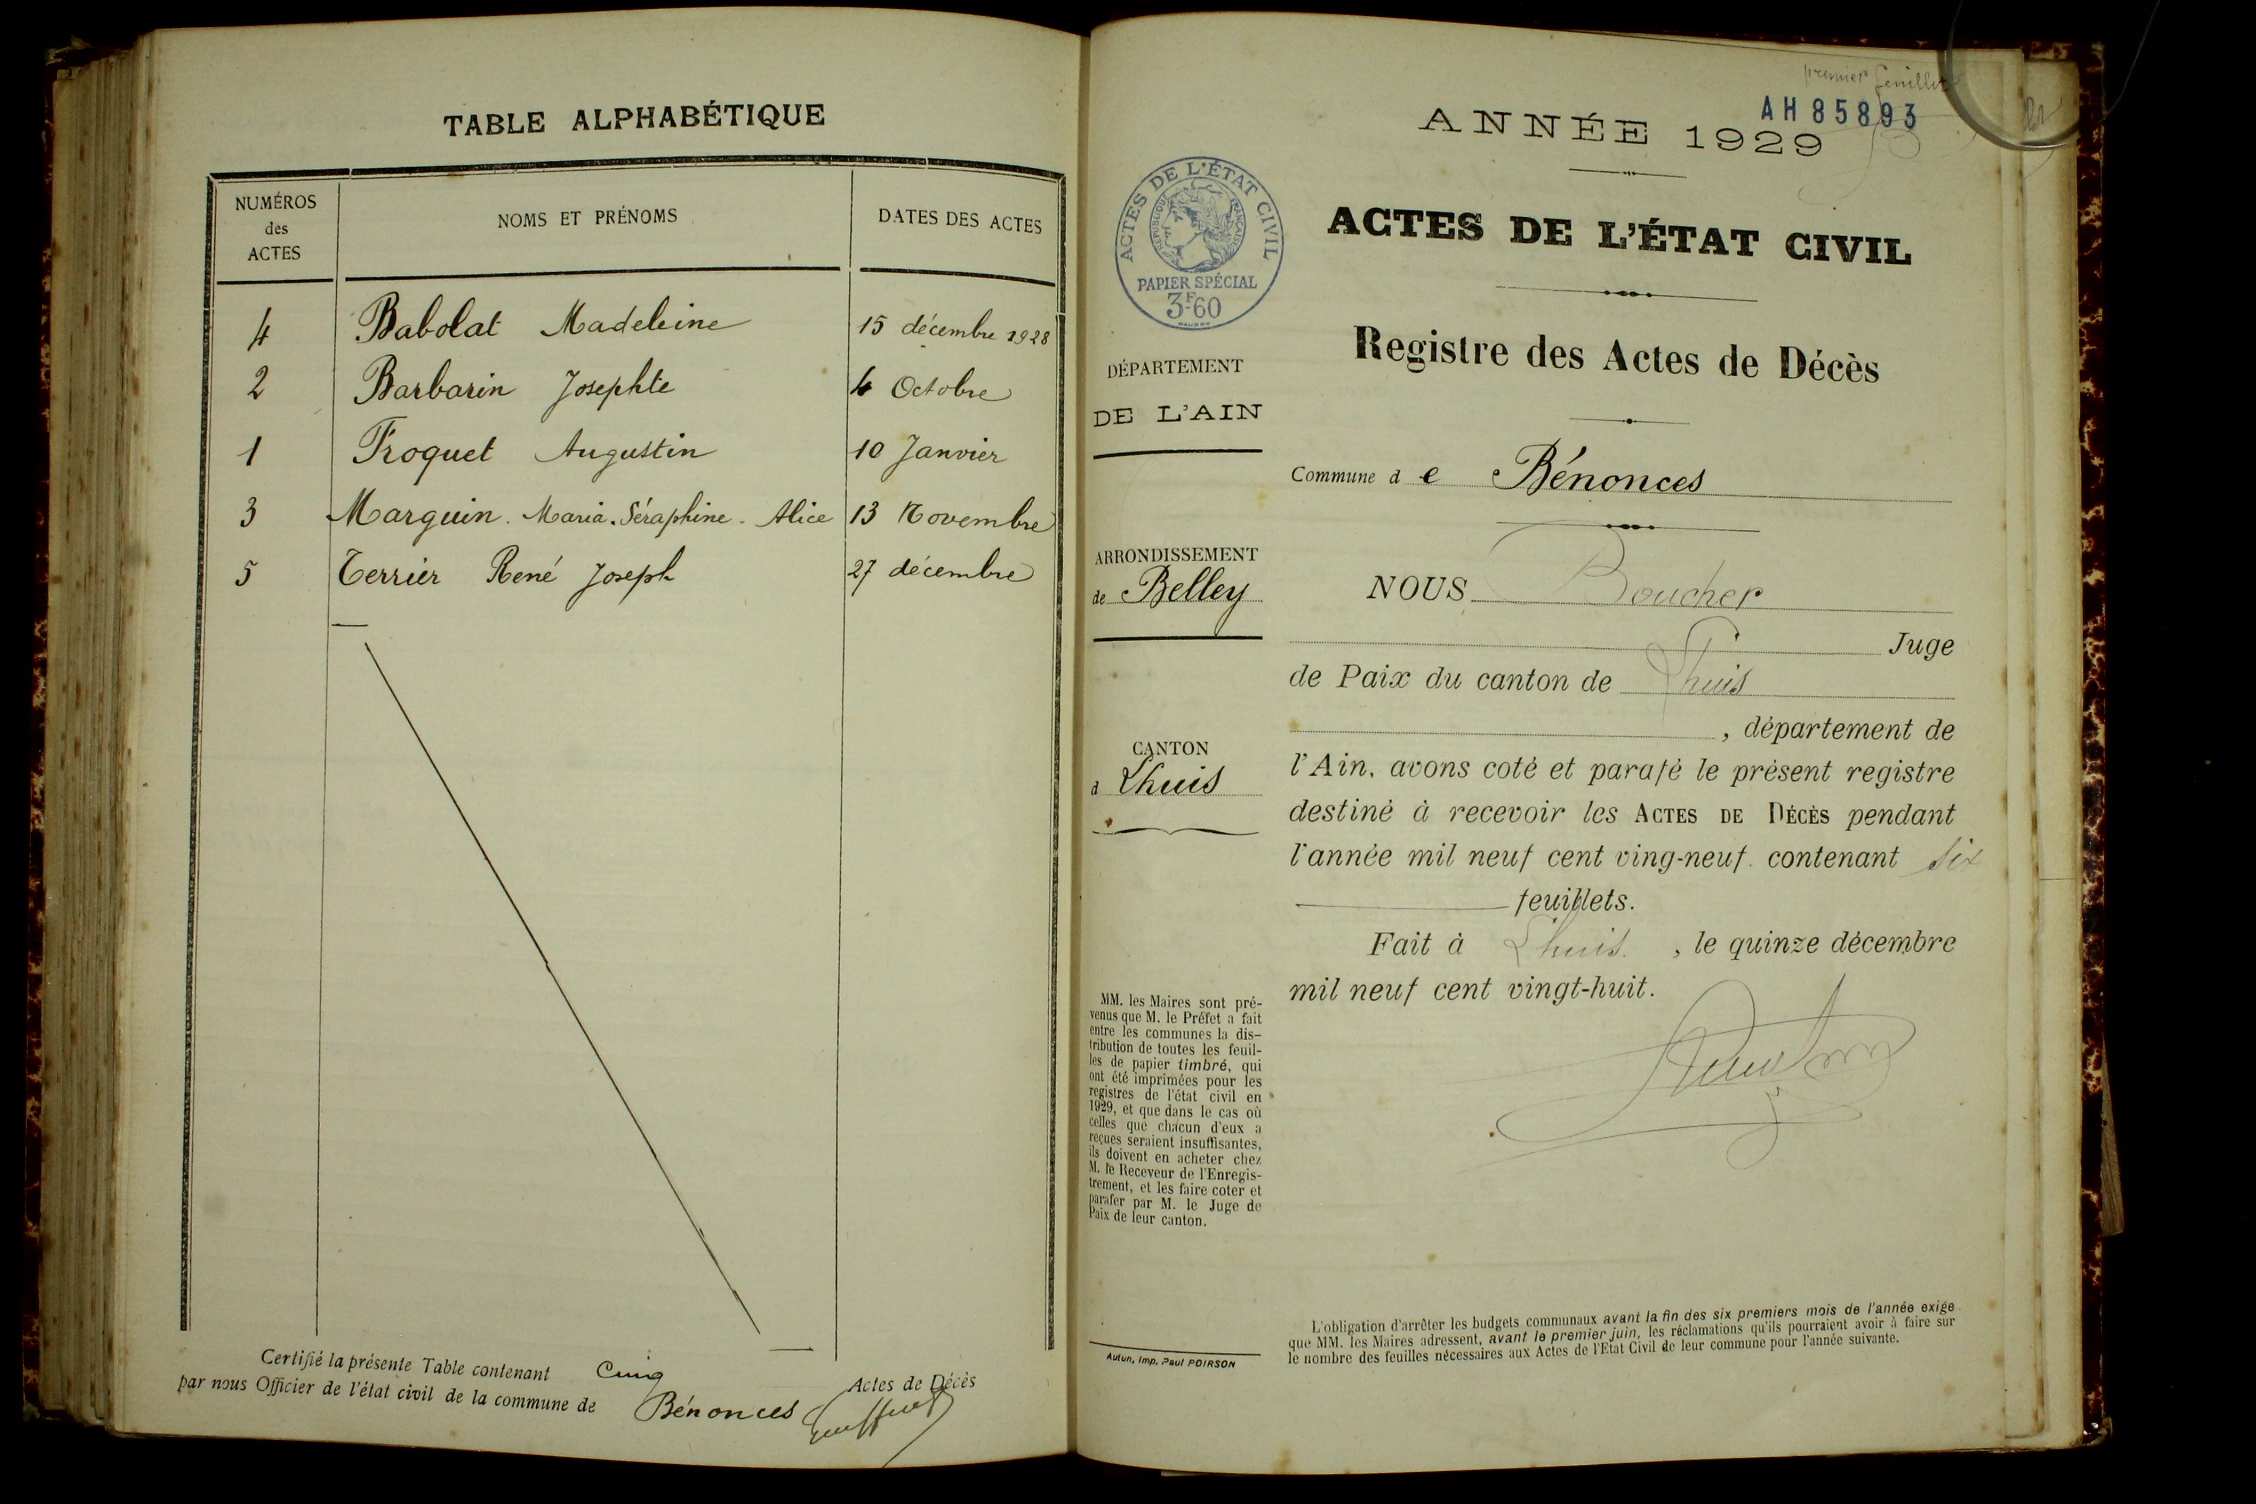 TABLE ALPHABÉTIQUE
NUMÉROS des ACTES
NOMS ET PRÉNOMS
DATES DES ACTES
4 Babolat Madeleine 15 décembre 1928
2 Barbarin Josephte 4 Octobre
1 Froquet Augustin 10 Janvier
3 Marguin. Maria. Séraphine. Alice 13 Novembre
5 Terrier René Joseph 27 décembre
Certifié la présente Table contenant Cinq Actes de Décès
par nous Officier de l'état civil de la commune de Bénonces
premier feuillet
AH85893
ANNÉE 1929
ACTES DE L'ÉTAT CIVIL
RÉPUBLIQUE FRANÇAISE
PAPIER SPÉCIAL
3F60
ACTES DE L'ÉTAT CIVIL
Registre des Actes de Décès
DÉPARTEMENT
DE L'AIN
Commune de Bénonces
ARRONDISSEMENT
de Belley
CANTON
d Lhuis
NOUS Boucher
Juge
de Paix du canton de Lhuis
, département de
l'Ain, avons coté et parafé le présent registre
destiné à recevoir les ACTES DE DÉCÈS pendant
l'année mil neuf cent ving-neuf. contenant six
feuillets.
Fait à Lhuis. , le quinze décembre
mil neuf cent vingt-huit.
MM. les Maires sont pré-
venus que M. le Préfet a fait
entre les communes la dis-
tribution de toutes les feuil-
les de papier timbré, qui
ont été imprimées pour les
registres de l'état civil en
1929, et que dans le cas où
celles que chacun d'eux a
reçues seraient insuffisantes,
ils doivent en acheter chez
M. le Receveur de l'Enregis-
trement, et les faire coter et
parafer par M. le Juge de
Paix de leur canton.
Autun, Imp. Paul POIRSON
L'obligation d'arrêter les budgets communaux avant la fin des six premiers mois de l'année exige
que MM. les Maires adressent, avant le premier juin, les réclamations qu'ils pourraient avoir à faire sur
le nombre des feuilles nécessaires aux Actes de l'Etat Civil de leur commune pour l'année suivante.